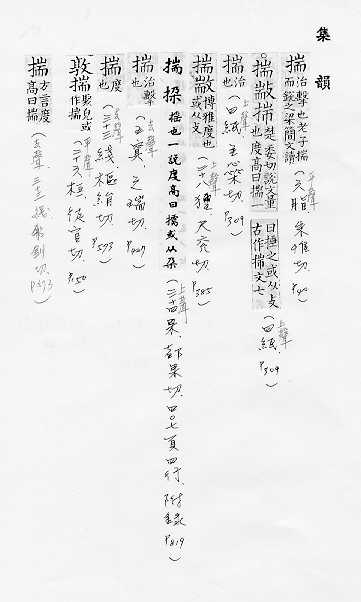 集韻
揣 治擊也老子揣而銳之梁簡文讀(六脂 朱惟切. P.40) 平聲
揣敪㪜 楚委切說文量也度高曰揣一曰捶之或从攴古作揣文七(四紙. P.309) 上聲
揣 治也(四紙 主橤切. P.309) 上聲
揣 博雅度也或从攴(二十八獮. 尺兖切. P.385) 上聲
揣挆 搖也一說度高曰揣或从朶(三十四果. 都果切. 四〇七頁四行. 附錄 P.819) 上聲
揣 治擊也(五寘. 之瑞切. P.467) 去聲
揣 度也(三十三線 樞絹切. P.573) 去聲
敦揣 聚皃或作揣(二十六桓 徒官切. P.150) 平聲
揣 方言度高曰揣(去聲 三十三線 P.573)